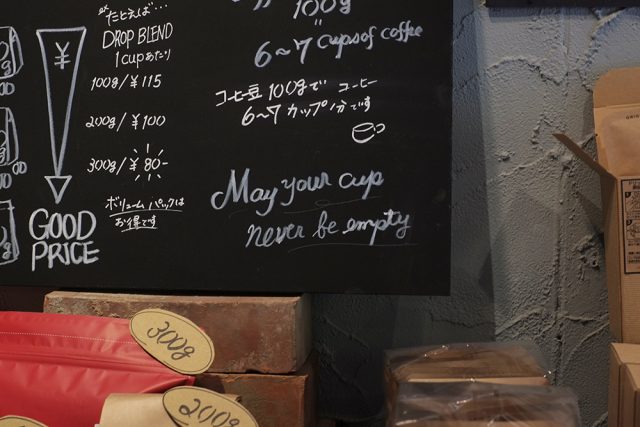 ¥
GOOD
PRICE
たとえば…
DROP BLEND
1cupあたり
100g/¥115
200g/¥100
300g/¥80-
ボリュームパックは
お得です
100g
"
6~7 cups of coffee
コーヒー豆 100gで コーヒー
6~7 カップ分です
May your cup
never be empty
300g
200g